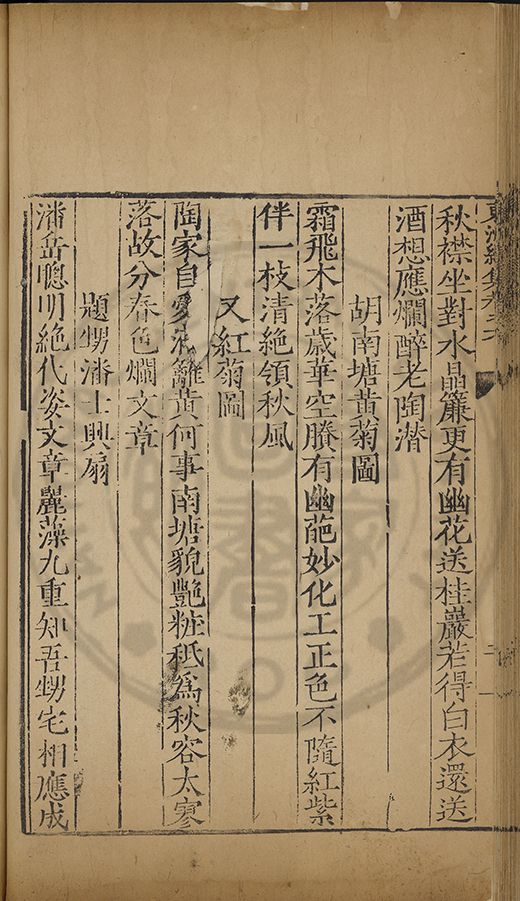 秋襟坐對水晶簾更有幽花送桂巖若得白衣還送
酒想應爛醉老陶潛
胡南塘黃菊圖
霜飛木落歲華空賸有幽葩妙化工正色不隨紅紫
伴一枝清絶領秋風
又紅菊圖
陶家自愛滿籬黃何事南塘貌艷粧秪爲秋容太寥
落故分春色爛文章
題甥潘士興扇
潘岳聰明絶代姿文章麗藻九重知吾甥宅相應成